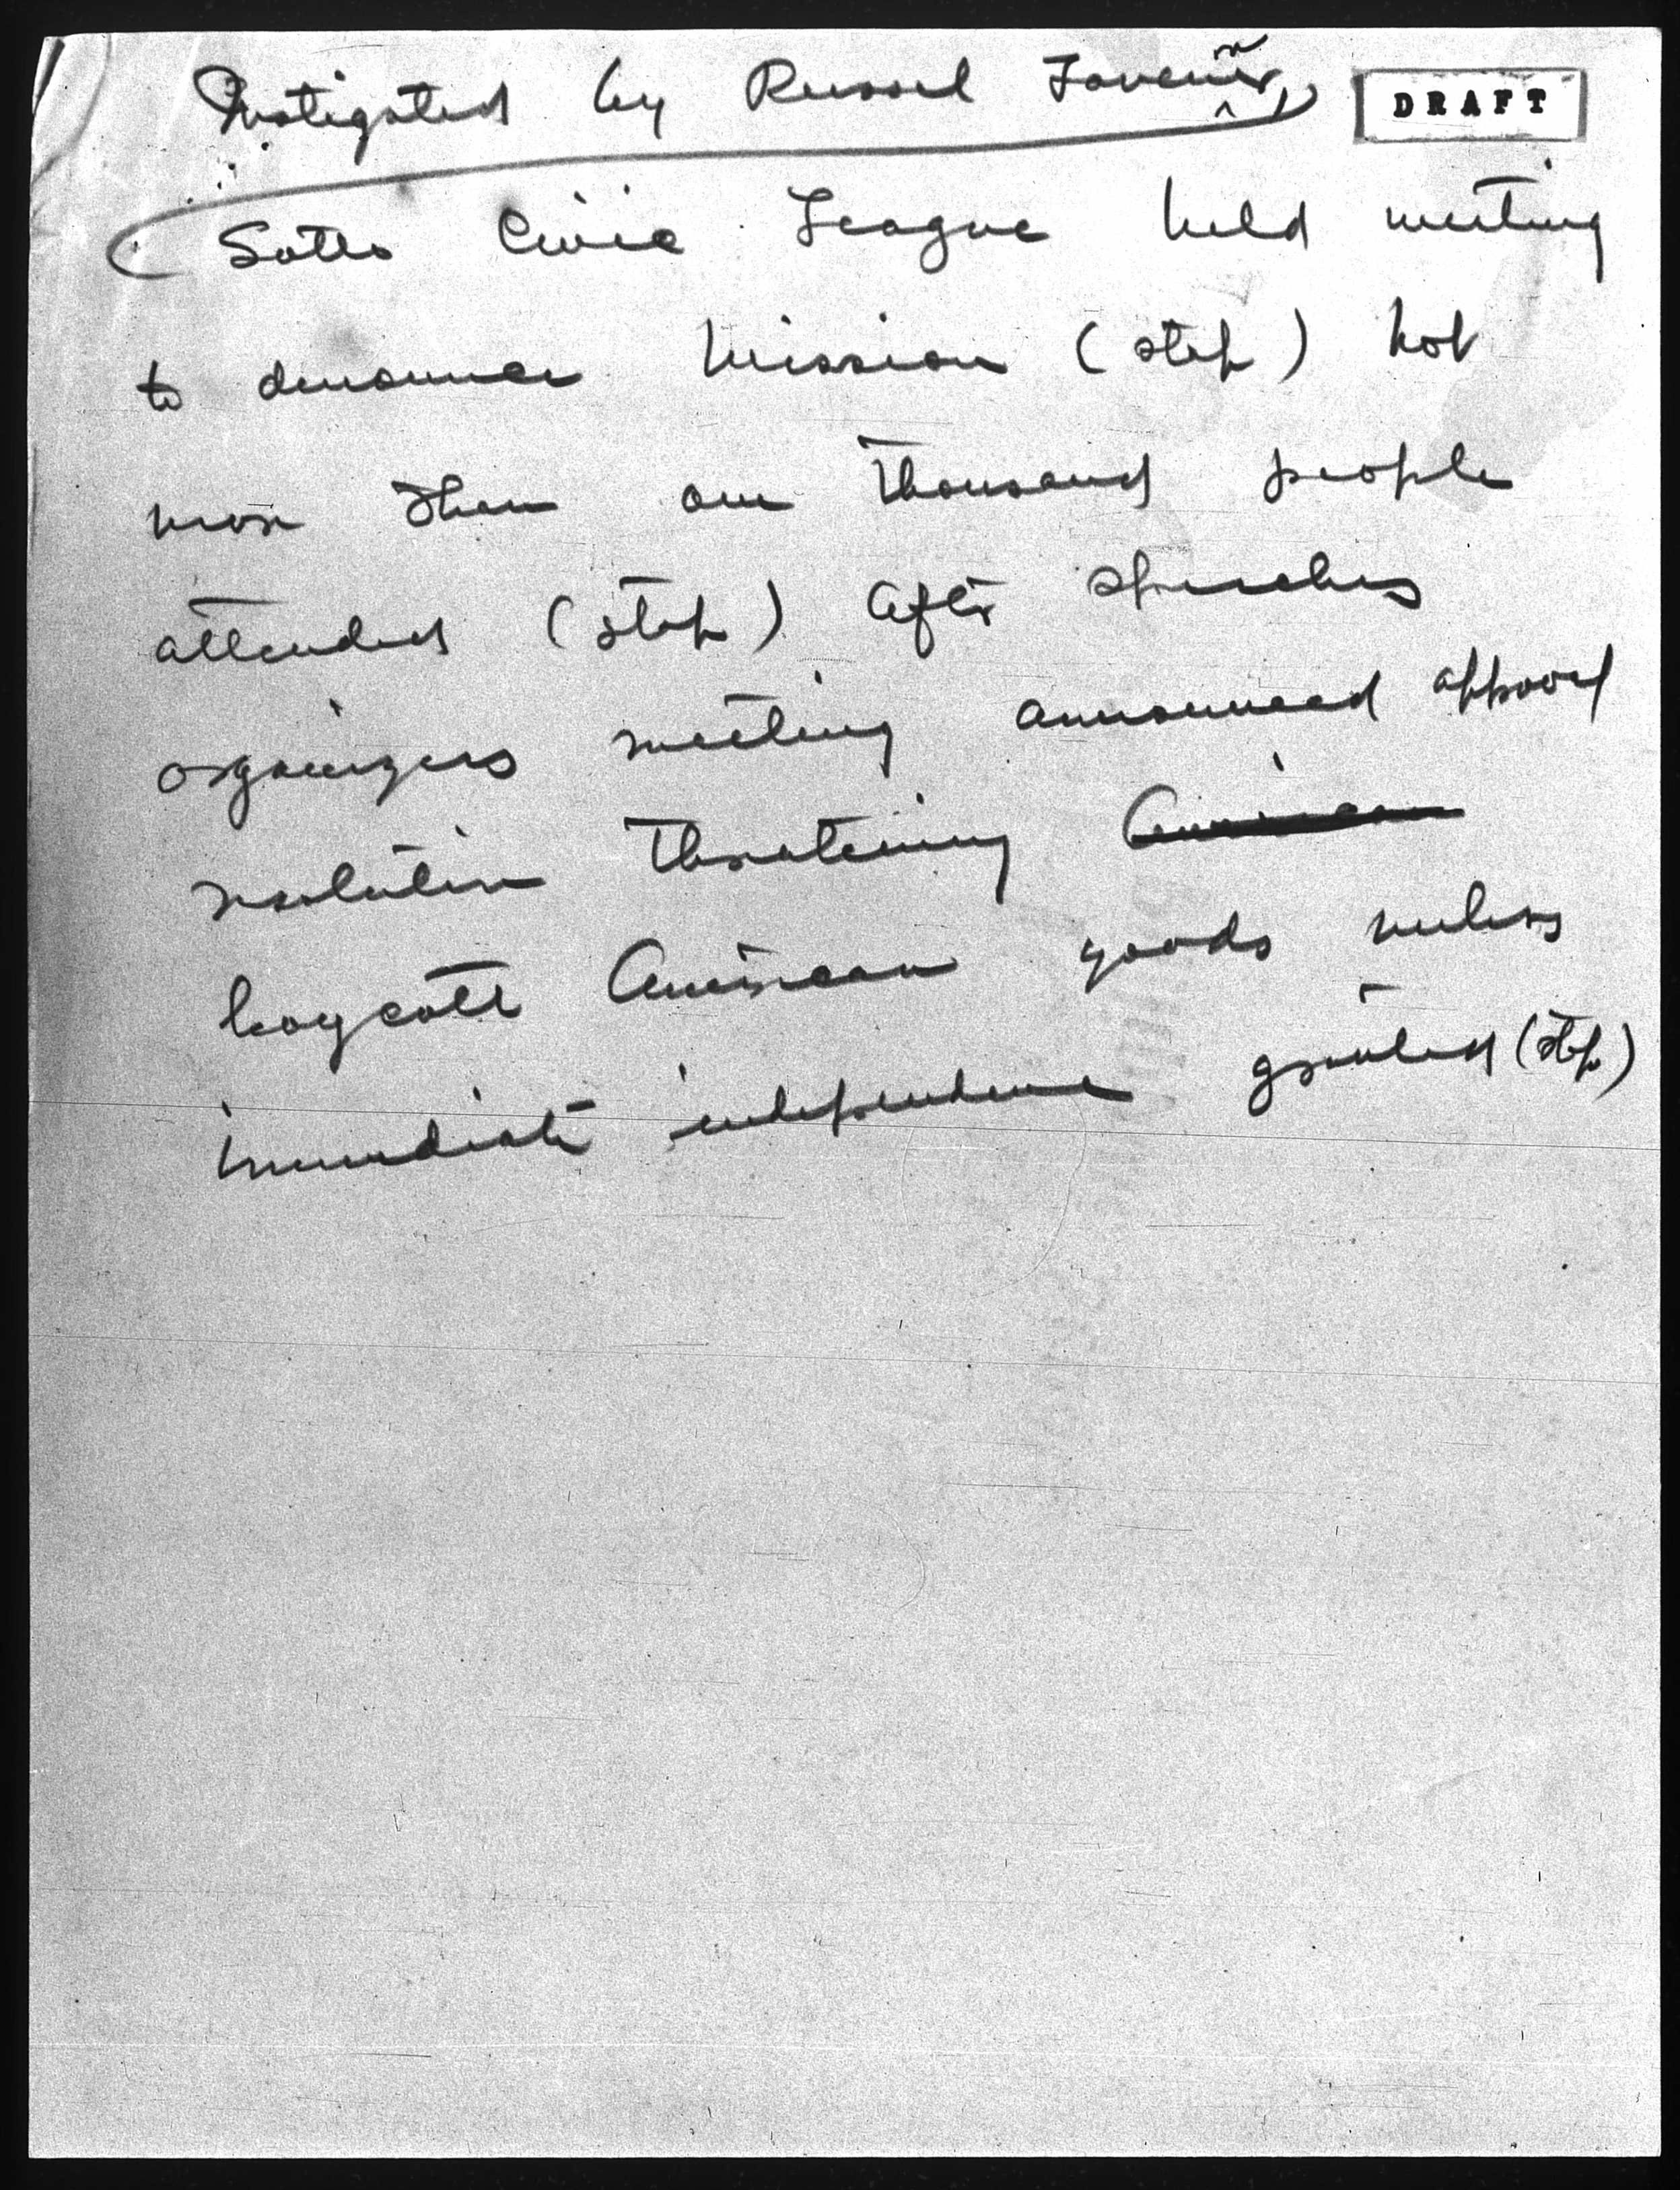 Instigated by Russel Tavenir,
DRAFT
Sotto Civic League held meeting
to denounce mission (stop) Not
more than one thousand people
attended (stop) After speeches
organizers meeting announced approval
resolution threatening American
boycott American goods unless
immediate independence granted (stop)